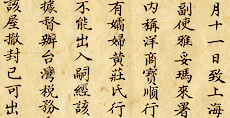 月十一日致上海
副使雅妥瑪來署
內稱洋商寶順行
有孀婦黃莊氏行
不能出入嗣經該
據督辦台灣稅務
該屋撤封已可出